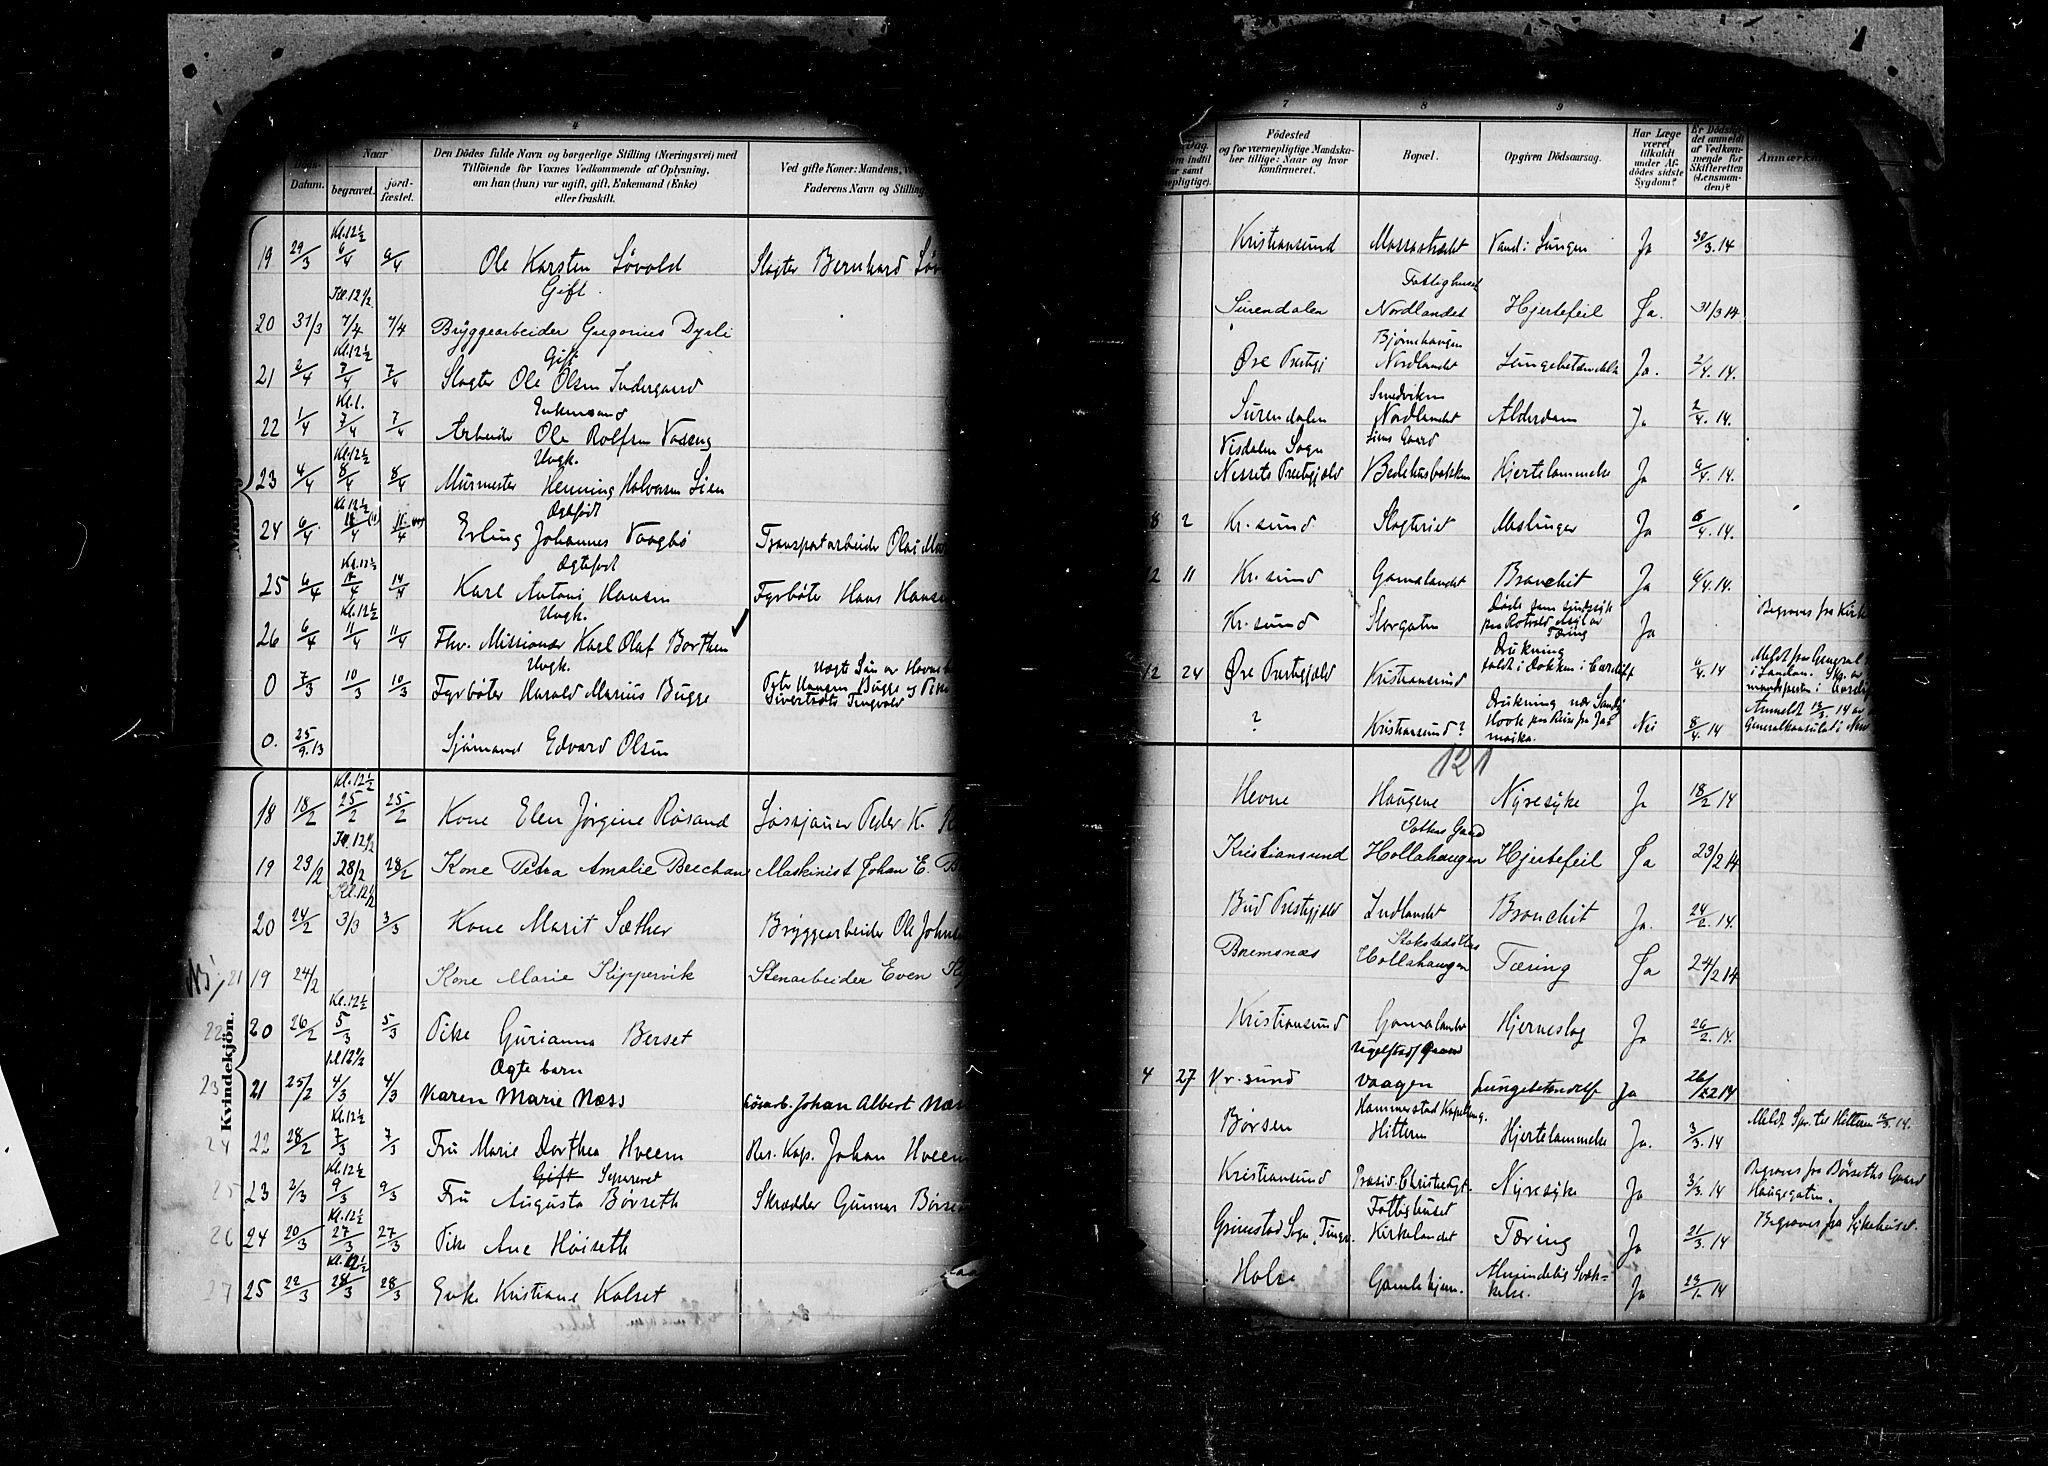 4
Naar
Datum.
begravet.
jord-
fæstet.
Den Dödes fulde Navn og borgerlige Stilling (Næringsvei) med
Tilföiende for Voxnes Vedkommende af Oplysning,
om han (hun) var ugift, gift, Enkemand (Enke)
eller fraskilt.
Ved gifte Koner: Mandens,
Faderens Navn og Stilling
Kl. 12½
19 29/3 6/4 6/4 Ole Karsten Løvold Slagter Bernhard Løv
Kl. 12½ Gift.
20 31/3 7/4 7/4 Bryggearbeider Gregorius Dyrli
Kl. 12½ Gift
21 2/4 7/4 7/4 Slagter Ole Olsen Indergaard
Kl. 1. Enkemand
22 1/4 7/4 7/4 Arbeider Ole Rolfsen Vaseng
Kl. 12½ Ungk.
23 4/4 8/4 8/4 Murmester Henning Halvorsen Lien
Kl. 12½ Ægtefødt
24 6/4 Erling Johannes Vaagbø Transportarbeider Olai
Kl. 12½ Ægtefødt
25 6/4 14/4 14/4 Karl Antoni Hansen Fyrbøter Hans Hansen
Kl. 12½ Ungk.
26 6/4 11/4 11/4 Fhv. Missionær Karl Olaf Borthen
Ungk.
0 7/3 10/3 10/3 Fyrbøter Harald Marius Bugge
Uægte Søn av
Hansen Bugge og Pike
Sivertsdtr Tingvold
0. 25/9.13 Sjömand Edvard Olsen
Kvindekjön.
Kl. 12½
18 18/2 25/2 25/2 Kone Elen Jørgine Røsand Løssjauer Peder K.
Kl. 12½
19 23/2 28/2 28/2 Kone Petra Amalie Beechan Maskinist Johan E. B
Kl. 12½
20 24/2 3/3 3/3 Kone Marit Sæther Bryggearbeider Ole Johns
21 19 24/2 Kone Marie Kippervik Stenarbeider Even
Kl. 12½
22 20 26/2 5/3 5/3 Pike Gurianna Berset
Kl. 12½ Ægte barn
23 21 25/2 4/3 4/3 Karen Marie Næss Løsarb. Johan Albert Næs
Kl. 12½
24 22 28/2 7/3 7/3 Fru Marie Dorthea Hveem Res. Kap. Johan Hveem
Kl. 12½ Gift Separeret
25 23 2/3 9/3 9/3 Fru Augusta Børseth Skrædder Gunnar Børse
Kl. 12½
26 24 20/3 27/3 27/3 Pike Ane Høiseth
Kl. 12½
27 25 22/3 28/3 28/3 Enke Kristiane Kalset
7
8
9
Dag.
Födested
og for værnepligtige Mandska-
ber tillige: Naar og hvor
konfirmeret.
Bopæl.
Opgiven Dödsaarsag.
Har Læge
været
tilkaldt
under Af-
dödes sidste
Sygdom?
Er Dödsfal-
det anmeldt
af Vedkom-
mende for
Skifteretten
(Lensman-
den)?
Anmærkn
Kristiansund Vand i Lungen Ja 30/3.14
Fattighuset
Surendalen Nordlandet Hjertefeil Ja. 31/3 14
Bjørnehaugen
Øre Prestgj Nordlandet Lungebetændelse Ja. 2/4.14.
Smedviken
Surendalen Nordlandet Alderdom Ja 2/4.14.
Visdalen Sogn Liens Gaard
Nessets Prestegjæld Bedehusbakken Hjertelammelse Ja 6/4.14.
8 2 Kr.sund Slagteriet Meslinger Ja 6/4.14.
12 11 Kr.sund Gomalandet Bronchit Ja 6/4.14.
Kr.sund Storgaten Døde som sindssyk
paa Rotvold Asyl av
Tæring Ja Begraves fra Kirk
12 24 Øre Prestegjæld Kristiansund Drukning
faldt i Dokken i Cardiff 6/4.14 Meldt fra General
i London.
? Kristiansund? Drukning nær Sandy
Hook paa Reise fra Ja-
maika. Nei 8/4.14 Anmeldt 13/3.14 av
Generalkonsulat i New
121
Hevne Haugene Nyresyke Ja 18/2 14
Kristiansund Hollahaugen Hjertefeil Ja 23/2 14
Bud Prestegjæld Indlandet Bronchit Ja. 24/2.14.
Bremsnæs Hollahaugen Tæring Ja 24/2 14
Kristiansund Gomalandet Hjerneslag Ja 26/2.14.
Ugelstads Gaard
4 27 Kr.sund Vaagen Lungebetændelse Ja 26/2 14
Børsen Hammerstad Kapelang.
Hitteren Hjertelammelse Ja. 3/3.14 Meldt Spr. til Hitteren 12/3.14.
Kristiansund Præsid. Christiesgt. Nyresyke Ja 3/3.14 Begraves fra Børseths Gaard
Haugegaten.
Fattighuset
Grimstad Sogn, Tingv. Kirkelandet Tæring Ja 21/3.14 Begraves fra Sykehuset.
Halsa Gamlehjem. Almindelig Svæk-
kelse. Ja